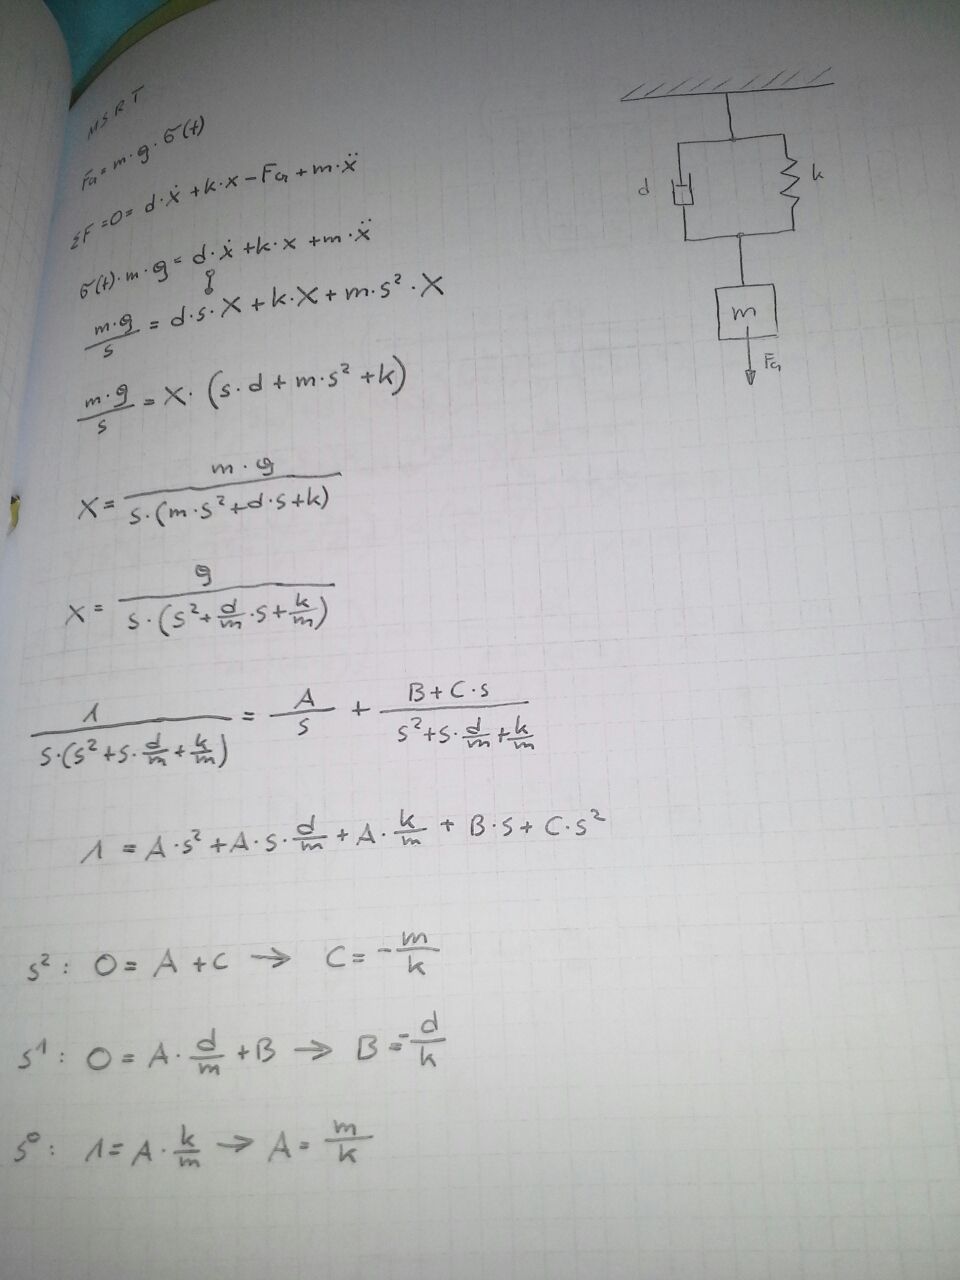 MSRT
F_G = m·g·σ(t)
ΣF = 0 = d·ẋ + k·x - F_G + m·ẍ
σ(t)·m·g = d·ẋ + k·x + m·ẍ
m·g/s = d·s·X + k·X + m·s²·X
m·g/s = X·(s·d + m·s² + k)
X = m·g/(s·(m·s² + d·s + k))
X = g/(s·(s² + d/m·s + k/m))
1/(s·(s² + s·d/m + k/m)) = A/s + (B + C·s)/(s² + s·d/m + k/m)
1 = A·s² + A·s·d/m + A·k/m + B·s + C·s²
s²: 0 = A + C → C = -m/k
s¹: 0 = A·d/m + B → B = -d/k
s⁰: 1 = A·k/m → A = m/k
d
k
m
F_G